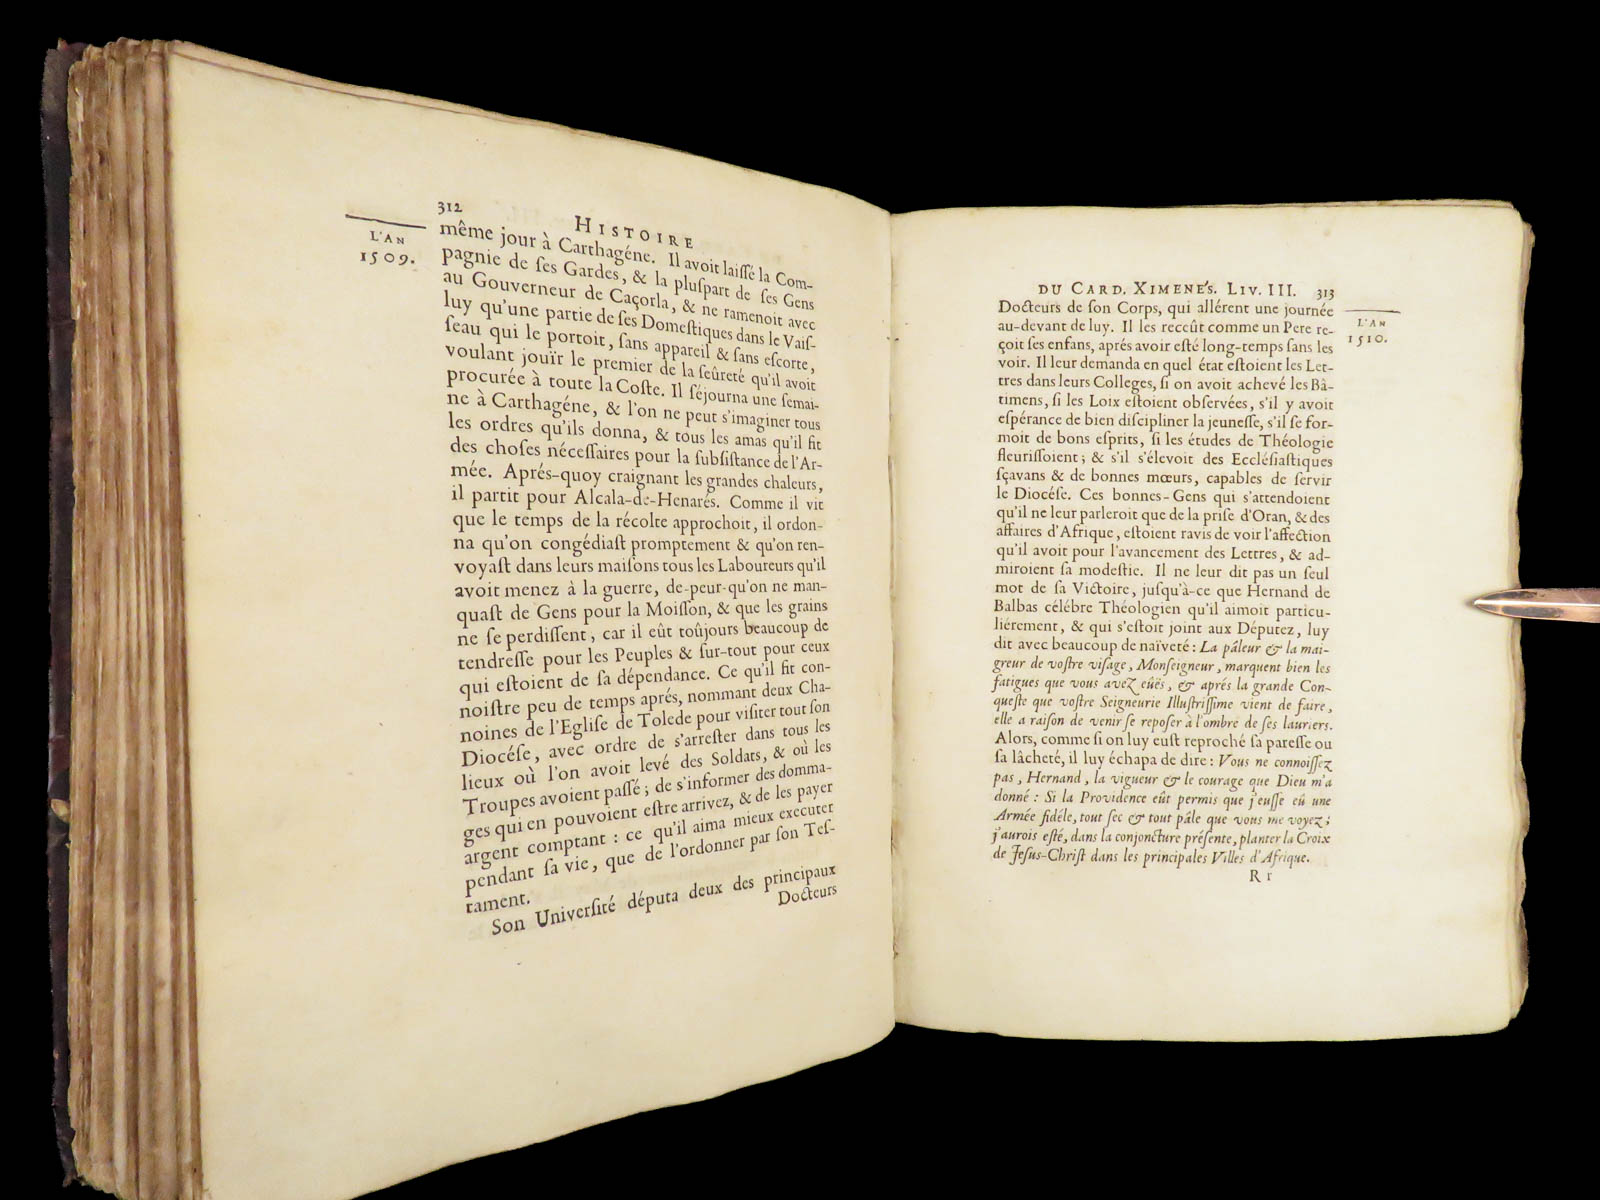 312
HISTOIRE
L'AN
1509.
même jour à Carthagéne. Il avoit laiſſé la Com-
pagnie de ſes Gardes, & la pluſpart de ſes Gens
au Gouverneur de Caçorla, & ne ramenoit avec
luy qu'une partie de ſes Domeſtiques dans le Vaiſ-
ſeau qui le portoit, ſans appareil & ſans eſcorte,
voulant jouïr le premier de la ſeûreté qu'il avoit
procurée à toute la Coſte. Il ſéjourna une ſemai-
ne à Carthagéne, & l'on ne peut s'imaginer tous
les ordres qu'ils donna, & tous les amas qu'il fit
des choſes néceſſaires pour la ſubſiſtance de l'Ar-
mée. Aprés-quoy craignant les grandes chaleurs,
il partit pour Alcala-de-Henarés. Comme il vit
que le temps de la récolte approchoit, il ordon-
na qu'on congédiaſt promptement & qu'on ren-
voyaſt dans leurs maiſons tous les Laboureurs qu'il
avoit menez à la guerre, de-peur-qu'on ne man-
quaſt de Gens pour la Moiſſon, & que les grains
ne ſe perdiſſent, car il eût toûjours beaucoup de
tendreſſe pour les Peuples & ſur-tout pour ceux
qui eſtoient de ſa dépendance. Ce qu'il fit con-
noiſtre peu de temps aprés, nommant deux Cha-
noines de l'Egliſe de Tolede pour viſiter tout ſon
Diocéſe, avec ordre de s'arreſter dans tous les
lieux où l'on avoit levé des Soldats, & où les
Troupes avoient paſſé; de s'informer des domma-
ges qui en pouvoient eſtre arrivez, & de les payer
argent comptant : ce qu'il aima mieux executer
pendant ſa vie, que de l'ordonner par ſon Teſ-
tament.
Son Univerſité députa deux des principaux
Docteurs
DU CARD. XIMENE'S. LIV. III. 313
L'AN
1510.
Docteurs de ſon Corps, qui allérent une journée
au-devant de luy. Il les receût comme un Pere re-
çoit ſes enfans, aprés avoir eſté long-temps ſans les
voir. Il leur demanda en quel état eſtoient les Let-
tres dans leurs Colleges, ſi on avoit achevé les Bâ-
timens, ſi les Loix eſtoient obſervées, s'il y avoit
eſpérance de bien diſcipliner la jeuneſſe, s'il ſe for-
moit de bons eſprits, ſi les études de Théologie
fleuriſſoient; & s'il s'élevoit des Eccléſiaſtiques
ſçavans & de bonnes mœurs, capables de ſervir
le Diocéſe. Ces bonnes-Gens qui s'attendoient
qu'il ne leur parleroit que de la priſe d'Oran, & des
affaires d'Afrique, eſtoient ravis de voir l'affection
qu'il avoit pour l'avancement des Lettres, & ad-
miroient ſa modeſtie. Il ne leur dit pas un ſeul
mot de ſa Victoire, juſqu'à-ce que Hernand de
Balbas célébre Théologien qu'il aimoit particu-
liérement, & qui s'eſtoit joint aux Députez, luy
dit avec beaucoup de naïveté : La pâleur & la mai-
greur de voſtre viſage, Monſeigneur, marquent bien les
fatigues que vous avez eûës, & aprés la grande Con-
queſte que voſtre Seigneurie Illuſtriſſime vient de faire,
elle a raiſon de venir ſe repoſer à l'ombre de ſes lauriers.
Alors, comme ſi on luy euſt reproché ſa pareſſe ou
ſa lâcheté, il luy échapa de dire : Vous ne connoiſſez
pas, Hernand, la vigueur & le courage que Dieu m'a
donné : Si la Providence eût permis que j'euſſe eû une
Armée fidéle, tout ſec & tout pâle que vous me voyez;
j'aurois eſté, dans la conjoncture préſente, planter la Croix
de Jeſus-Chriſt dans les principales Villes d'Afrique.
R r